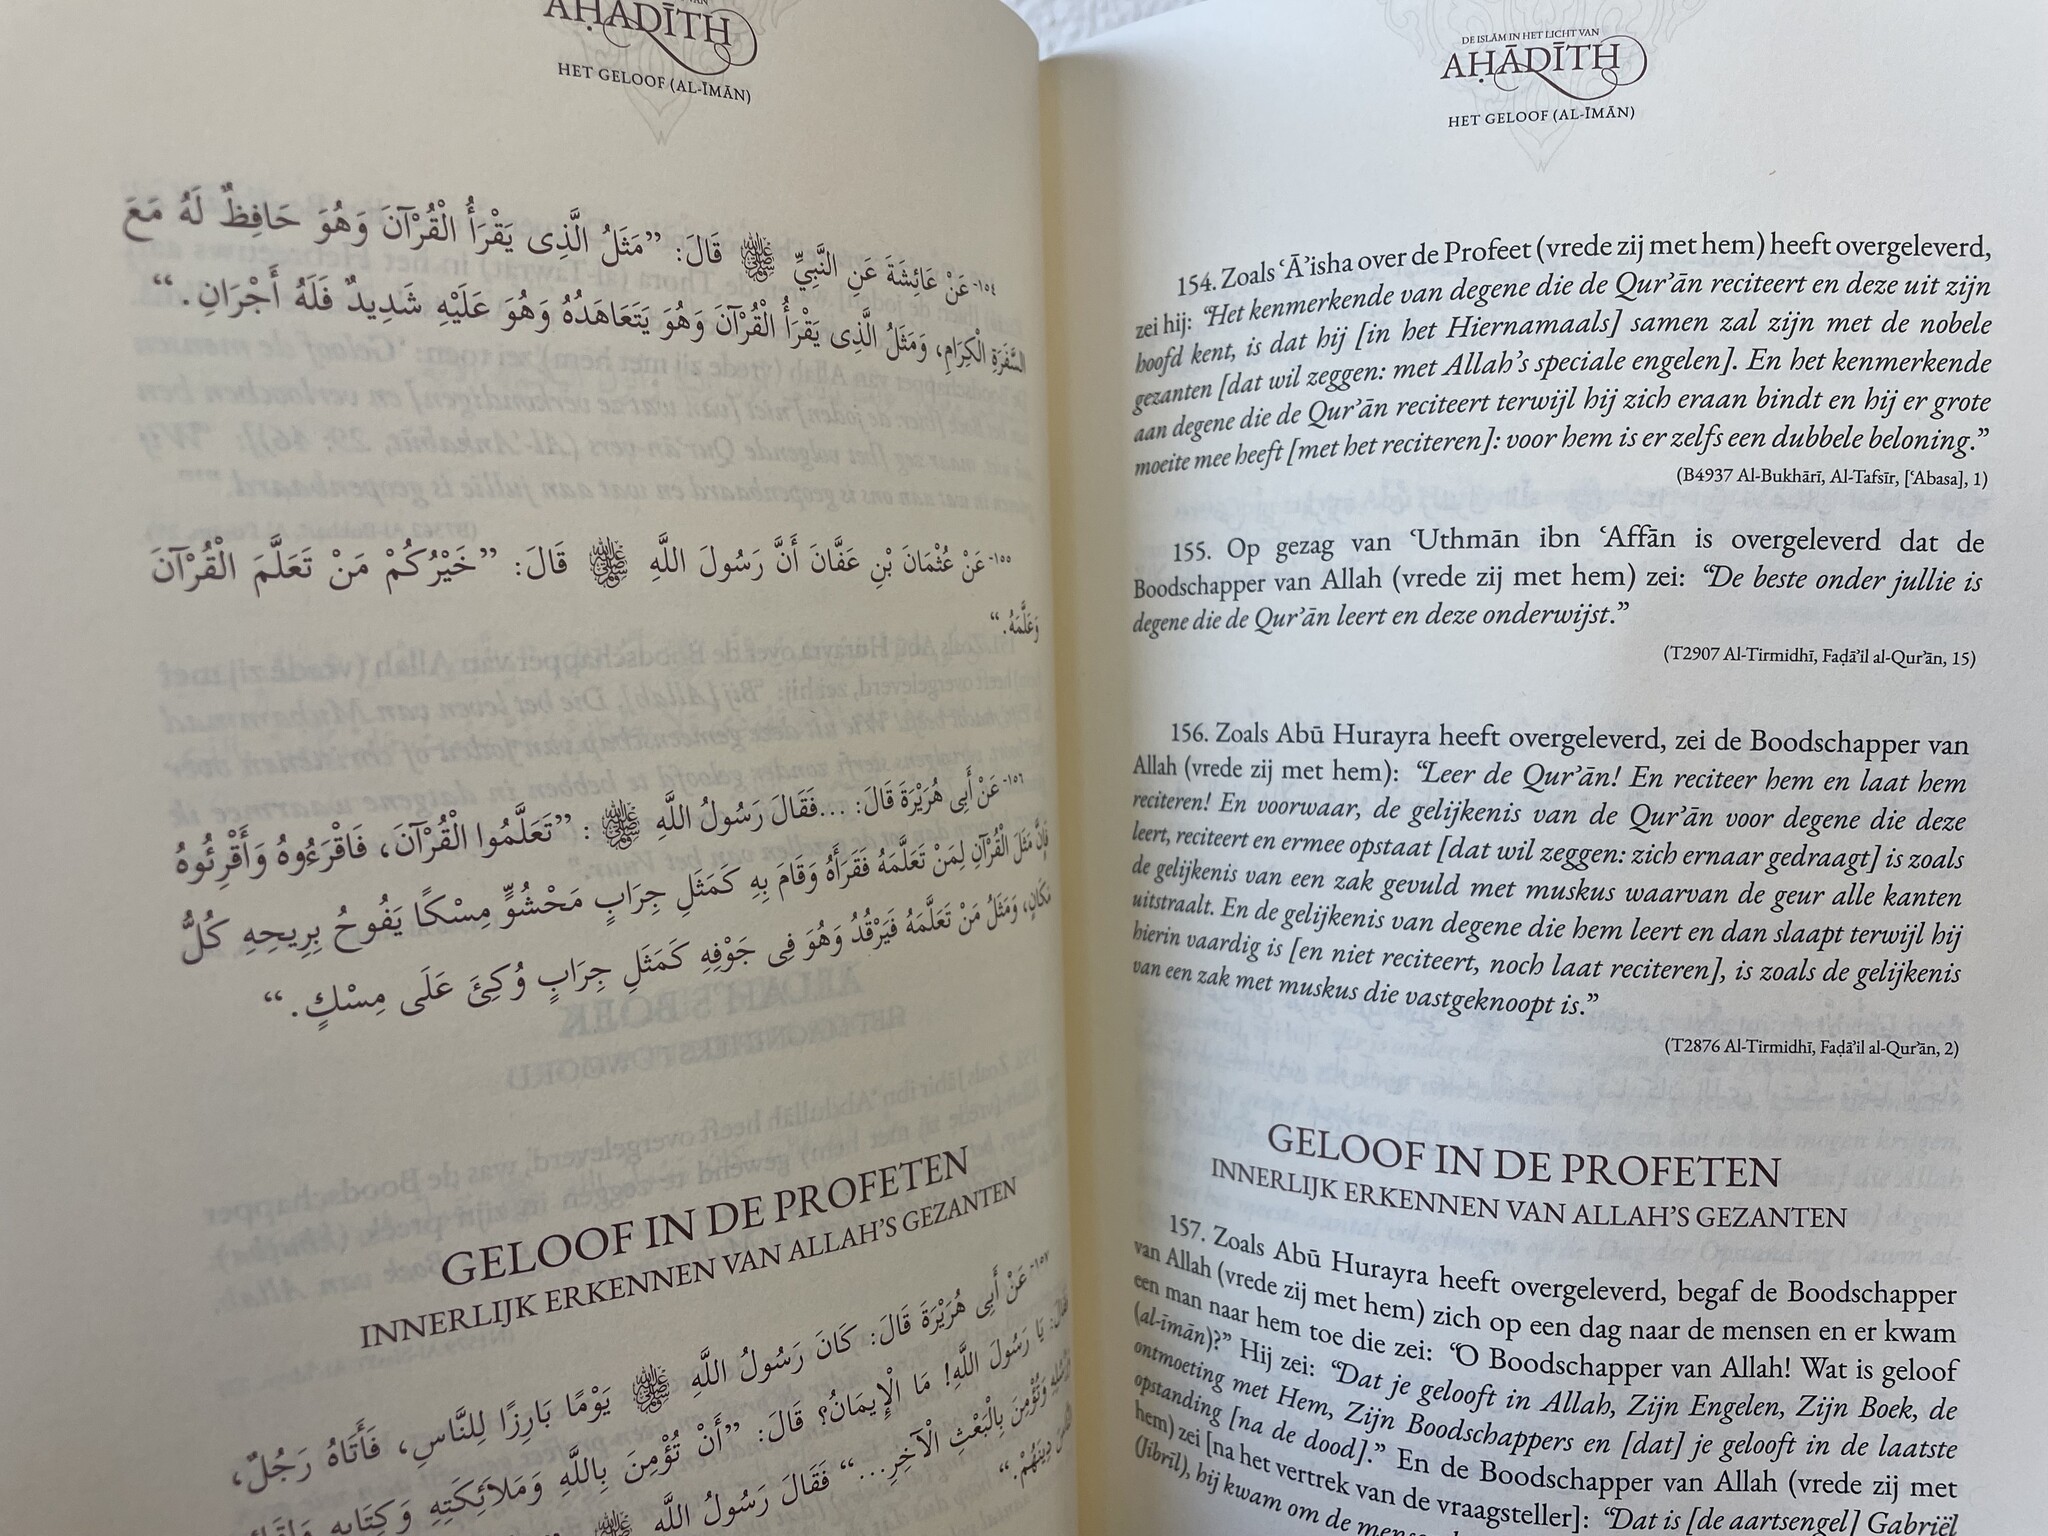 AḤĀDĪTH
HET GELOOF (AL-ĪMĀN)
١٥٤- عَنْ عَائِشَةَ عَنِ النَّبِيِّ ﷺ قَالَ: ”مَثَلُ الَّذِى يَقْرَأُ الْقُرْآنَ وَهُوَ حَافِظٌ لَهُ مَعَ
السَّفَرَةِ الْكِرَامِ، وَمَثَلُ الَّذِى يَقْرَأُ الْقُرْآنَ وَهُوَ يَتَعَاهَدُهُ وَهُوَ عَلَيْهِ شَدِيدٌ فَلَهُ أَجْرَانِ.“
١٥٥- عَنْ عُثْمَانَ بْنِ عَفَّانَ أَنَّ رَسُولَ اللَّهِ ﷺ قَالَ: ”خَيْرُكُمْ مَنْ تَعَلَّمَ الْقُرْآنَ
وَعَلَّمَهُ.“
١٥٦- عَنْ أَبِى هُرَيْرَةَ قَالَ: ...فَقَالَ رَسُولُ اللَّهِ ﷺ: ”تَعَلَّمُوا الْقُرْآنَ، فَاقْرَءُوهُ وَأَقْرِئُوهُ
فَإِنَّ مَثَلَ الْقُرْآنِ لِمَنْ تَعَلَّمَهُ فَقَرَأَهُ وَقَامَ بِهِ كَمَثَلِ جِرَابٍ مَحْشُوٍّ مِسْكًا يَفُوحُ بِرِيحِهِ كُلُّ
مَكَانٍ، وَمَثَلُ مَنْ تَعَلَّمَهُ فَيَرْقُدُ وَهُوَ فِى جَوْفِهِ كَمَثَلِ جِرَابٍ وُكِئَ عَلَى مِسْكٍ.“
GELOOF IN DE PROFETEN
INNERLIJK ERKENNEN VAN ALLAH'S GEZANTEN
١٥٧- عَنْ أَبِى هُرَيْرَةَ قَالَ: كَانَ رَسُولُ اللَّهِ ﷺ يَوْمًا بَارِزًا لِلنَّاسِ، فَأَتَاهُ رَجُلٌ،
فَقَالَ: يَا رَسُولَ اللَّهِ! مَا الْإِيمَانُ؟ قَالَ: ”أَنْ تُؤْمِنَ بِاللَّهِ وَمَلَائِكَتِهِ وَكِتَابِهِ
وَتُؤْمِنَ بِالْبَعْثِ الْآخِرِ...“ فَقَالَ رَسُولُ اللَّهِ ﷺ
دِينَهُمْ.“
DE ISLĀM IN HET LICHT VAN
AḤĀDĪTH
HET GELOOF (AL-ĪMĀN)
154. Zoals ‘Ā’isha over de Profeet (vrede zij met hem) heeft overgeleverd,
zei hij: “Het kenmerkende van degene die de Qur’ān reciteert en deze uit zijn
hoofd kent, is dat hij [in het Hiernamaals] samen zal zijn met de nobele
gezanten [dat wil zeggen: met Allah’s speciale engelen]. En het kenmerkende
aan degene die de Qur’ān reciteert terwijl hij zich eraan bindt en hij er grote
moeite mee heeft [met het reciteren]: voor hem is er zelfs een dubbele beloning.”
(B4937 Al-Bukhārī, Al-Tafsīr, [‘Abasa], 1)
155. Op gezag van ‘Uthmān ibn ‘Affān is overgeleverd dat de
Boodschapper van Allah (vrede zij met hem) zei: “De beste onder jullie is
degene die de Qur’ān leert en deze onderwijst.”
(T2907 Al-Tirmidhī, Faḍā’il al-Qur’ān, 15)
156. Zoals Abū Hurayra heeft overgeleverd, zei de Boodschapper van
Allah (vrede zij met hem): “Leer de Qur’ān! En reciteer hem en laat hem
reciteren! En voorwaar, de gelijkenis van de Qur’ān voor degene die deze
leert, reciteert en ermee opstaat [dat wil zeggen: zich ernaar gedraagt] is zoals
de gelijkenis van een zak gevuld met muskus waarvan de geur alle kanten
uitstraalt. En de gelijkenis van degene die hem leert en dan slaapt terwijl hij
hierin vaardig is [en niet reciteert, noch laat reciteren], is zoals de gelijkenis
van een zak met muskus die vastgeknoopt is.”
(T2876 Al-Tirmidhī, Faḍā’il al-Qur’ān, 2)
GELOOF IN DE PROFETEN
INNERLIJK ERKENNEN VAN ALLAH’S GEZANTEN
157. Zoals Abū Hurayra heeft overgeleverd, begaf de Boodschapper
van Allah (vrede zij met hem) zich op een dag naar de mensen en er kwam
een man naar hem toe die zei: “O Boodschapper van Allah! Wat is geloof
(al-īmān)?” Hij zei: “Dat je gelooft in Allah, Zijn Engelen, Zijn Boek, de
ontmoeting met Hem, Zijn Boodschappers en [dat] je gelooft in de laatste
opstanding [na de dood].” En de Boodschapper van Allah (vrede zij met
hem) zei [na het vertrek van de vraagsteller]: “Dat is [de aartsengel] Gabriël
(Jibrīl), hij kwam om de